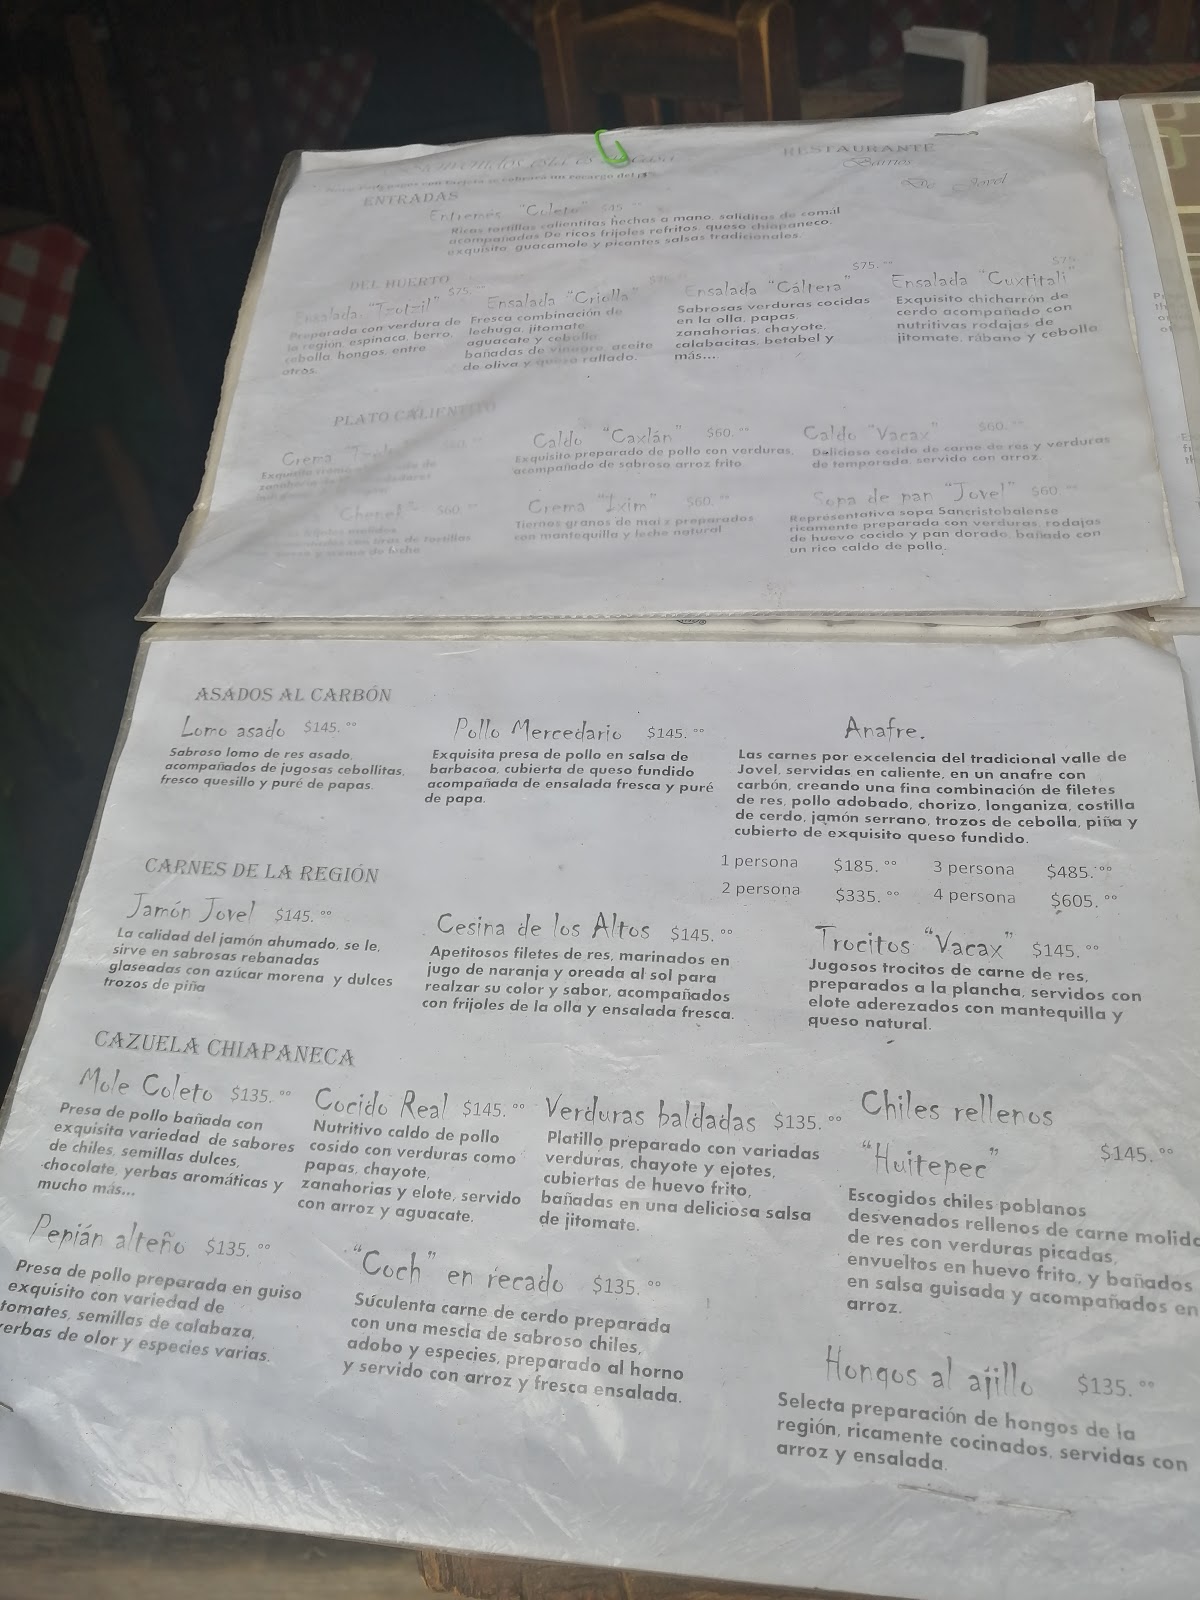 RESTAURANTE
Barrios
De Jovel
ENTRADAS
Entremés "Coleto" $45.
Ricas tortillas calientitas hechas a mano, saliditas de comál
acompañadas De ricos frijoles refritos, queso chiapaneco,
exquisito, guacamole y picantes salsas tradicionales.
DEL HUERTO
Ensalada "Tzotzil" $75.°°
Preparada con verdura de
la región, espinaca, berro,
cebolla, hongos, entre
otros.
Ensalada "Criolla"
Fresca combinación de
lechuga, jitomate,
aguacate y cebolla
bañadas de vinagre, aceite
de oliva y queso rallado.
$75.°°
Ensalada "Cáltera"
Sabrosas verduras cocidas
en la olla, papas,
zanahorias, chayote,
calabacitas, betabel y
más....
$75.
Ensalada "Cuxtitali"
Exquisito chicharrón de
cerdo acompañado con
nutritivas rodajas de
jitomate, rábano y cebolla
PLATO CALIENTITO
Crema
Caldo "Caxlán" $60.°°
Exquisito preparado de pollo con verduras,
acompañado de sabroso arroz frito.
Caldo "Vacax" $60.°°
Delicioso cocido de carne de res y verduras
de temporada, servido con arroz.
"Chenek" $60.°°
Crema "Ixim" $60.°°
Tiernos granos de maíz preparados
con mantequilla y leche natural
Sopa de pan "Jovel" $60.°°
Representativa sopa Sancristobalense
ricamente preparada con verduras, rodajas
de huevo cocido y pan dorado, bañado con
un rico caldo de pollo.
ASADOS AL CARBÓN
Lomo asado $145.°°
Sabroso lomo de res asado,
acompañados de jugosas cebollitas,
fresco quesillo y puré de papas.
Pollo Mercedario $145.°°
Exquisita presa de pollo en salsa de
barbacoa, cubierta de queso fundido
acompañada de ensalada fresca y puré
de papa.
Anafre.
Las carnes por excelencia del tradicional valle de
Jovel, servidas en caliente, en un anafre con
carbón, creando una fina combinación de filetes
de res, pollo adobado, chorizo, longaniza, costilla
de cerdo, jamón serrano, trozos de cebolla, piña y
cubierto de exquisito queso fundido.
1 persona $185.°° 3 persona $485.°°
2 persona $335.°° 4 persona $605.°°
CARNES DE LA REGIÓN
Jamón Jovel $145.°°
La calidad del jamón ahumado, se le,
sirve en sabrosas rebanadas
glaseadas con azúcar morena y dulces
trozos de piña
Cesina de los Altos $145.°°
Apetitosos filetes de res, marinados en
jugo de naranja y oreada al sol para
realzar su color y sabor, acompañados
con frijoles de la olla y ensalada fresca.
Trocitos "Vacax" $145.°°
Jugosos trocitos de carne de res,
preparados a la plancha, servidos con
elote aderezados con mantequilla y
queso natural.
CAZUELA CHIAPANECA
Mole Coleto $135.°°
Presa de pollo bañada con
exquisita variedad de sabores
de chiles, semillas dulces,
chocolate, yerbas aromáticas y
mucho más...
Cocido Real $145.°°
Nutritivo caldo de pollo
cosido con verduras como
papas, chayote,
zanahorias y elote, servido
con arroz y aguacate.
Verduras baldadas $135.°°
Platillo preparado con variadas
verduras, chayote y ejotes,
cubiertas de huevo frito,
bañadas en una deliciosa salsa
de jitomate.
Chiles rellenos
"Huitepec" $145.°°
Escogidos chiles poblanos
desvenados rellenos de carne molida
de res con verduras picadas,
envueltos en huevo frito, y bañados
en salsa guisada y acompañados en
arroz.
Pepián alteño $135.°°
Presa de pollo preparada en guiso
exquisito con variedad de
tomates, semillas de calabaza,
yerbas de olor y especies varias.
"Coch" en recado $135.°°
Súculenta carne de cerdo preparada
con una mescla de sabroso chiles,
adobo y especies, preparado al horno
y servido con arroz y fresca ensalada.
Hongos al ajillo $135.°°
Selecta preparación de hongos de la
región, ricamente cocinados, servidas con
arroz y ensalada.